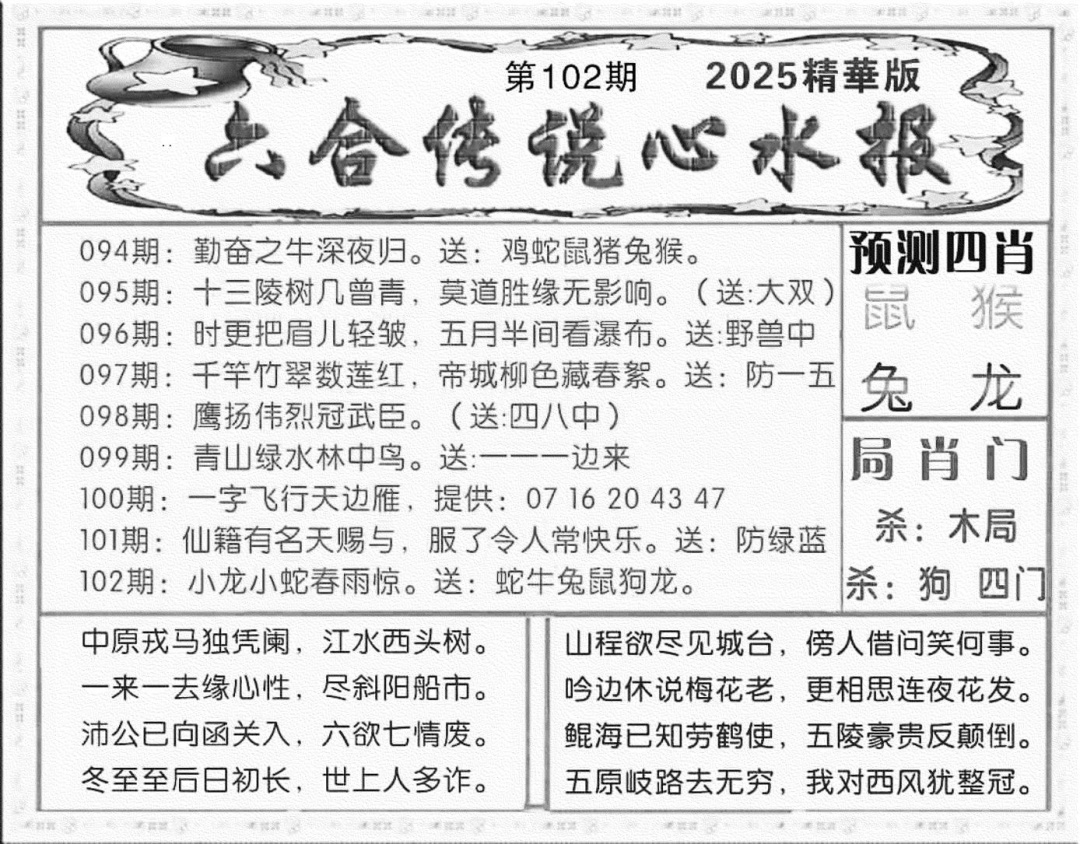 第102期 2025精華版
六合传说心水报
094期：勤奋之牛深夜归。送：鸡蛇鼠猪兔猴。
095期：十三陵树几曾青，莫道胜缘无影响。（送:大双）
096期：时更把眉儿轻皱，五月半间看瀑布。送:野兽中
097期：千竿竹翠数莲红，帝城柳色藏春絮。送：防一五
098期：鹰扬伟烈冠武臣。（送:四八中）
099期：青山绿水林中鸟。送:一一一边来
100期：一字飞行天边雁，提供：07 16 20 43 47
101期：仙籍有名天赐与，服了令人常快乐。送：防绿蓝
102期：小龙小蛇春雨惊。送：蛇牛兔鼠狗龙。
预测四肖
鼠 猴
兔 龙
局肖门
杀：木局
杀：狗 四门
中原戎马独凭阑，江水西头树。
一来一去缘心性，尽斜阳船市。
沛公已向函关入，六欲七情废。
冬至至后日初长，世上人多诈。
山程欲尽见城台，傍人借问笑何事。
吟边休说梅花老，更相思连夜花发。
鲲海已知劳鹤使，五陵豪贵反颠倒。
五原岐路去无穷，我对西风犹整冠。